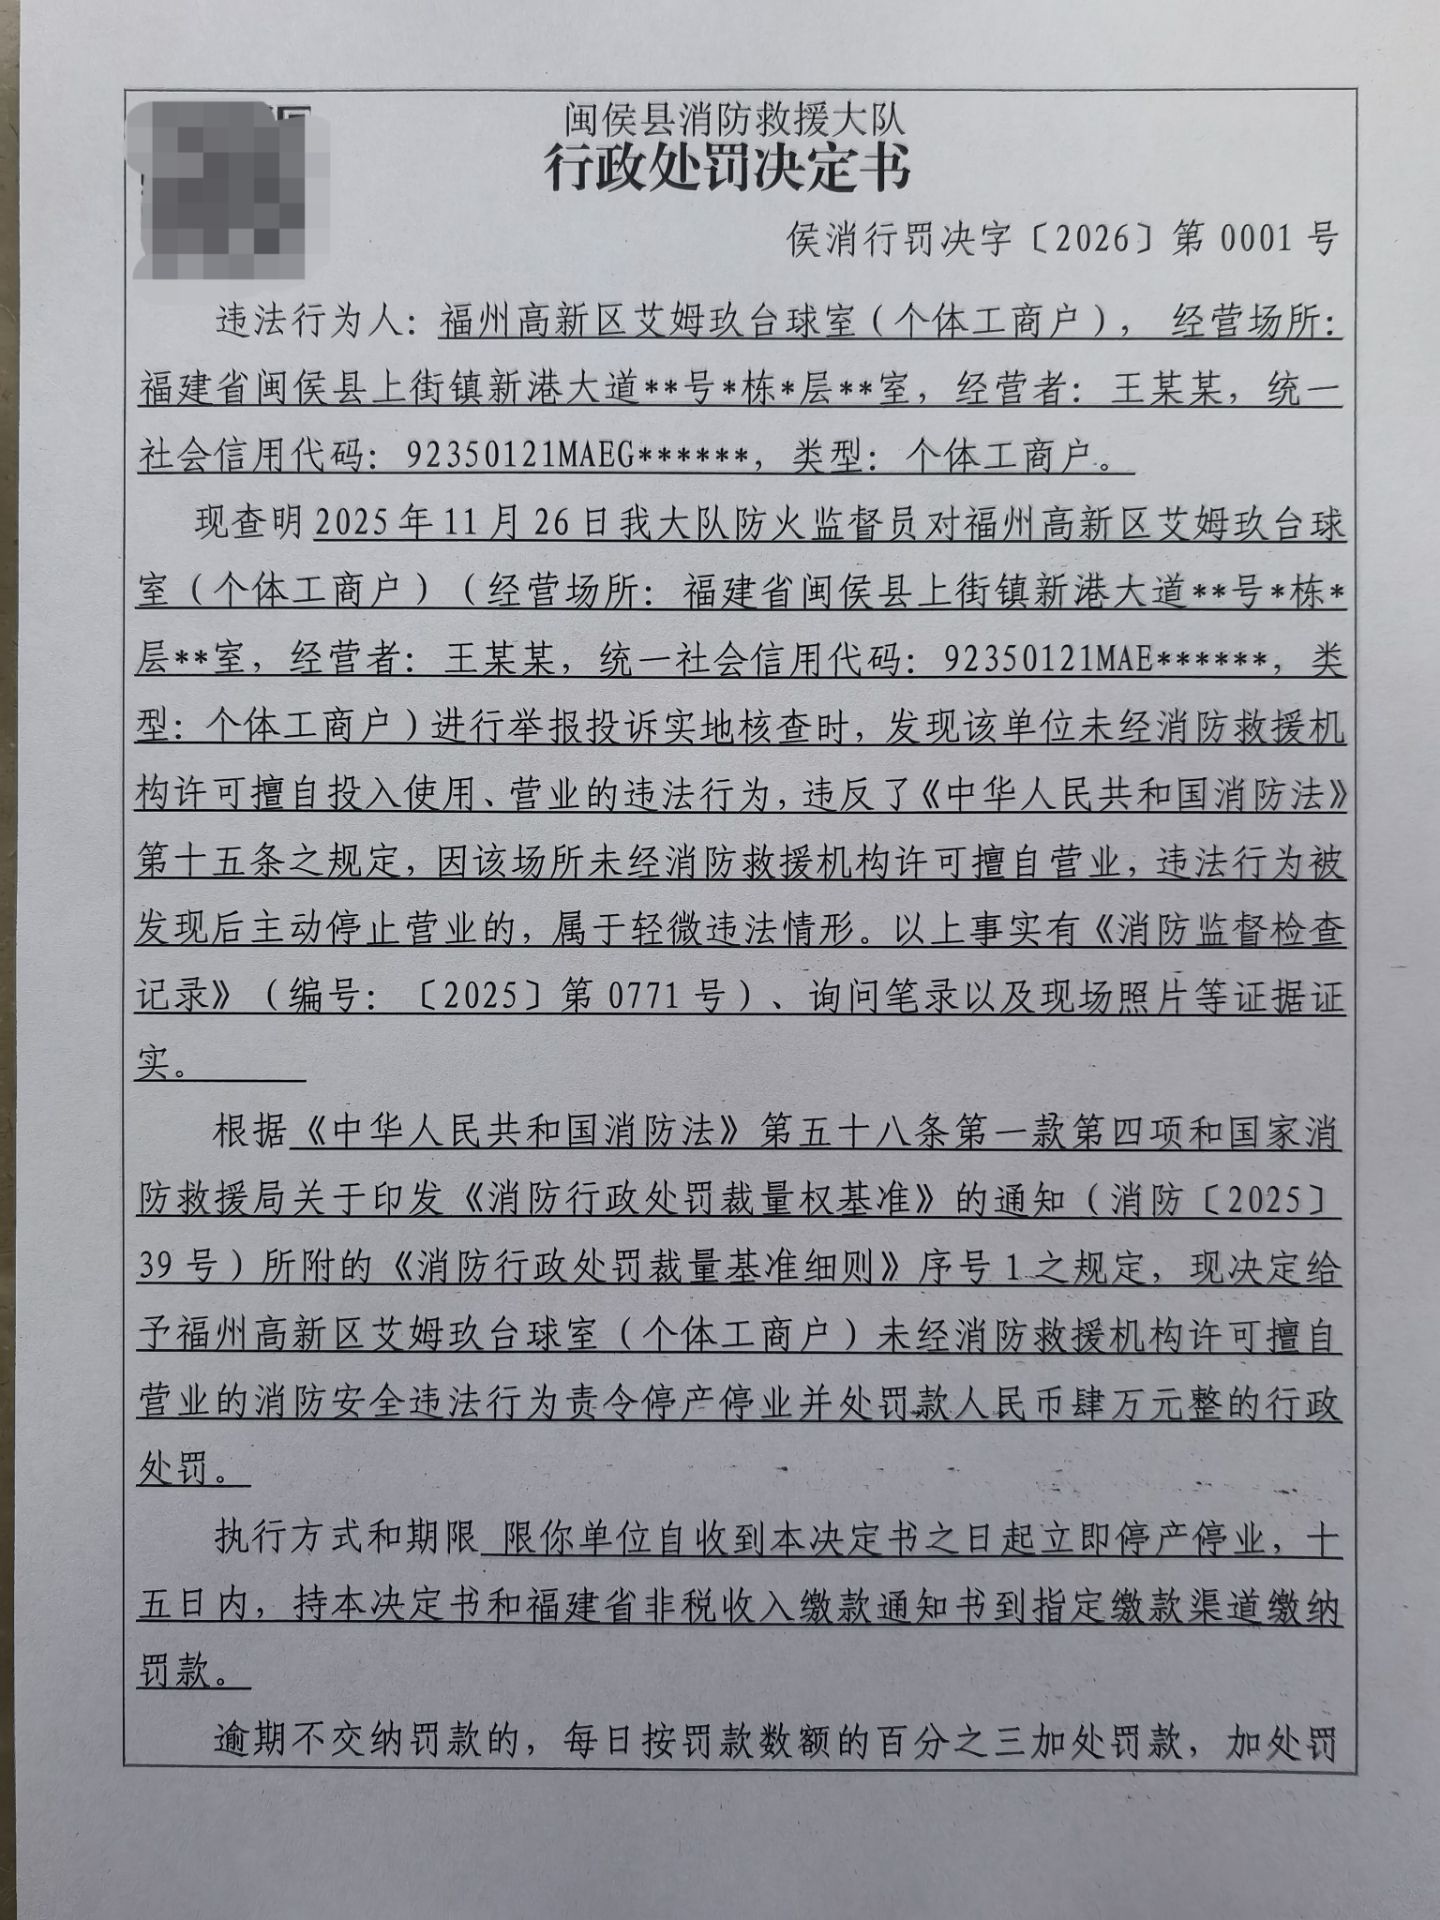 闽侯县消防救援大队
行政处罚决定书
侯消行罚决字〔2026〕第 0001 号
违法行为人：福州高新区艾姆玖台球室（个体工商户）， 经营场所：
福建省闽侯县上街镇新港大道**号*栋*层**室，经营者：王某某，统一
社会信用代码：92350121MAEG******，类型：个体工商户。
现查明 2025 年 11 月 26 日我大队防火监督员对福州高新区艾姆玖台球
室（个体工商户）（经营场所：福建省闽侯县上街镇新港大道**号*栋*
层**室，经营者：王某某，统一社会信用代码：92350121MAE******，类
型：个体工商户）进行举报投诉实地核查时，发现该单位未经消防救援机
构许可擅自投入使用、营业的违法行为，违反了《中华人民共和国消防法》
第十五条之规定，因该场所未经消防救援机构许可擅自营业，违法行为被
发现后主动停止营业的，属于轻微违法情形。以上事实有《消防监督检查
记录》（编号：〔2025〕第 0771 号）、询问笔录以及现场照片等证据证
实。
根据《中华人民共和国消防法》第五十八条第一款第四项和国家消
防救援局关于印发《消防行政处罚裁量权基准》的通知（消防〔2025〕
39 号）所附的《消防行政处罚裁量基准细则》序号 1 之规定，现决定给
予福州高新区艾姆玖台球室（个体工商户）未经消防救援机构许可擅自
营业的消防安全违法行为责令停产停业并处罚款人民币肆万元整的行政
处罚。
执行方式和期限 限你单位自收到本决定书之日起立即停产停业，十
五日内，持本决定书和福建省非税收入缴款通知书到指定缴款渠道缴纳
罚款。
逾期不交纳罚款的，每日按罚款数额的百分之三加处罚款，加处罚